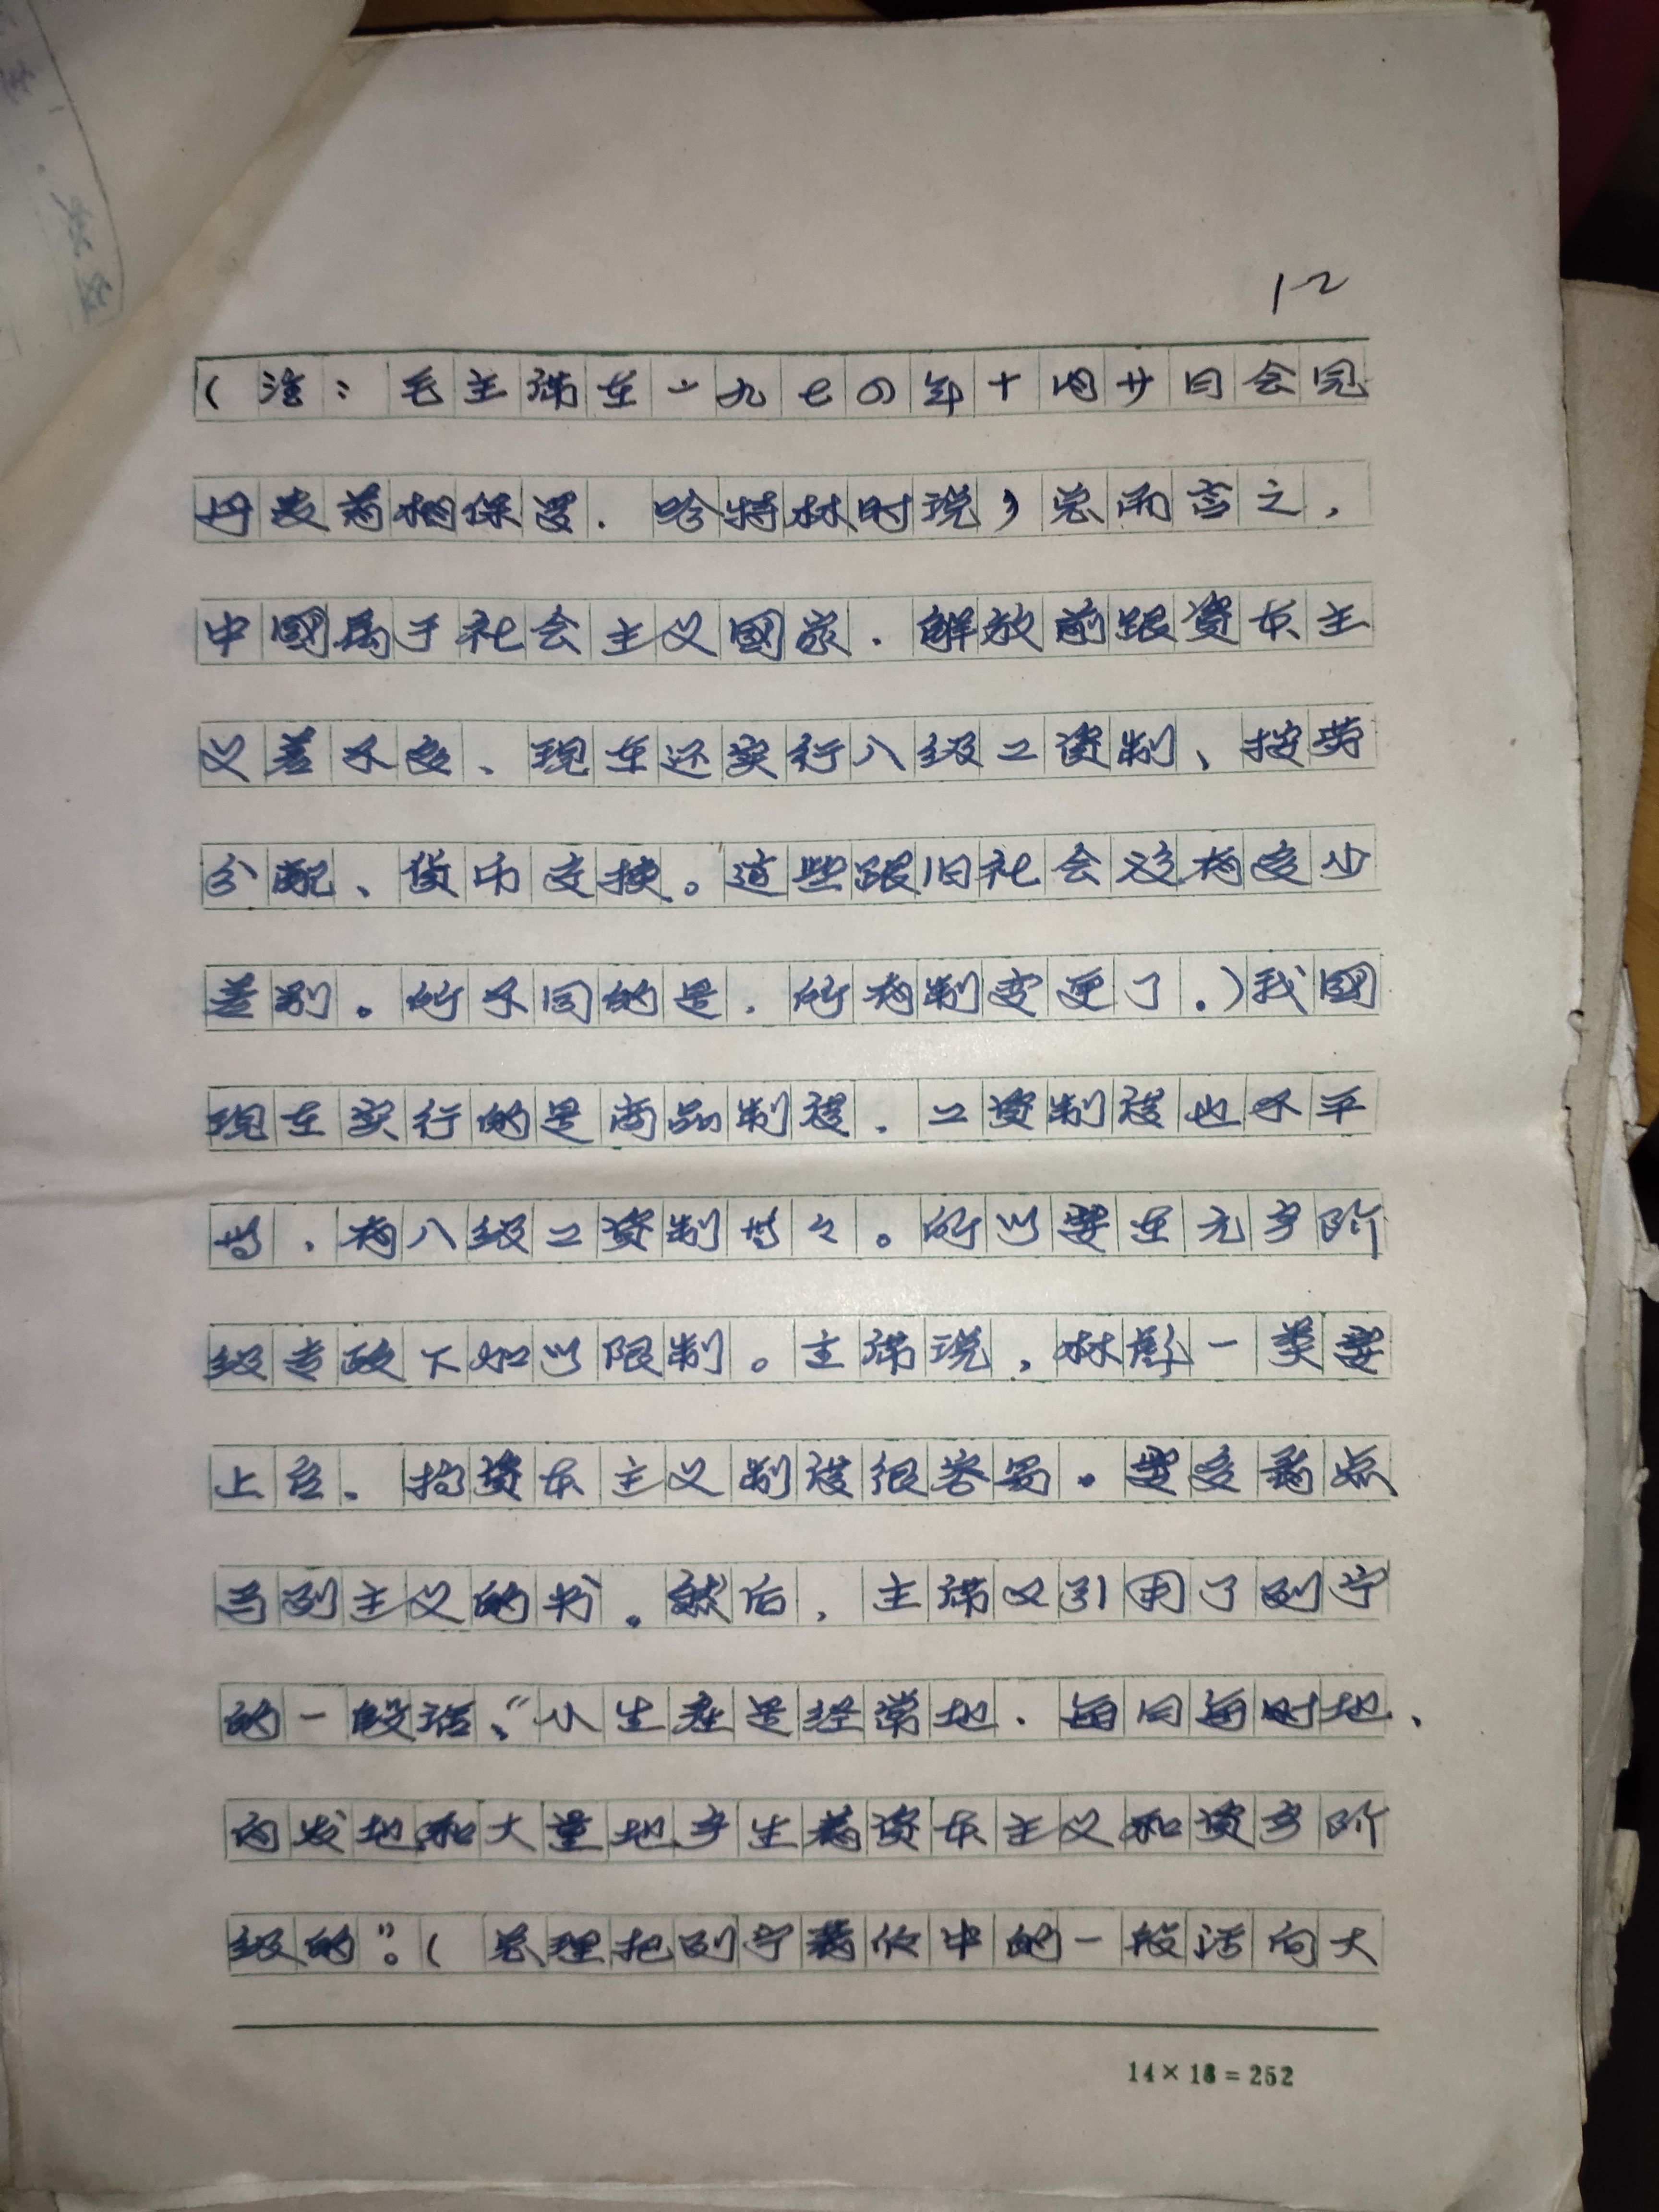 12
（注：毛主席在一九七四年十月廿日会见
丹麦首相保罗．哈特林时说）总而言之，
中國属于社会主义國家．解放前跟资本主
义差不多、现在还实行八级工资制、按劳
分配、货币交换。这些跟旧社会没有多少
差别。所不同的是．所有制变更了．）我國
现在实行的是商品制度．工资制度也不平
等．有八级工资制等々。所以要在无产阶
级专政下加以限制。主席说，林彪一类要
上台、搞资本主义制度很容易。要多看点
马列主义的书。然后，主席又引用了列宁
的一段话、“小生产是经常地．每日每时地、
自发地和大量地产生着资本主义和资产阶
级的”。（总理把列宁著作中的一段话向大
14×18=252